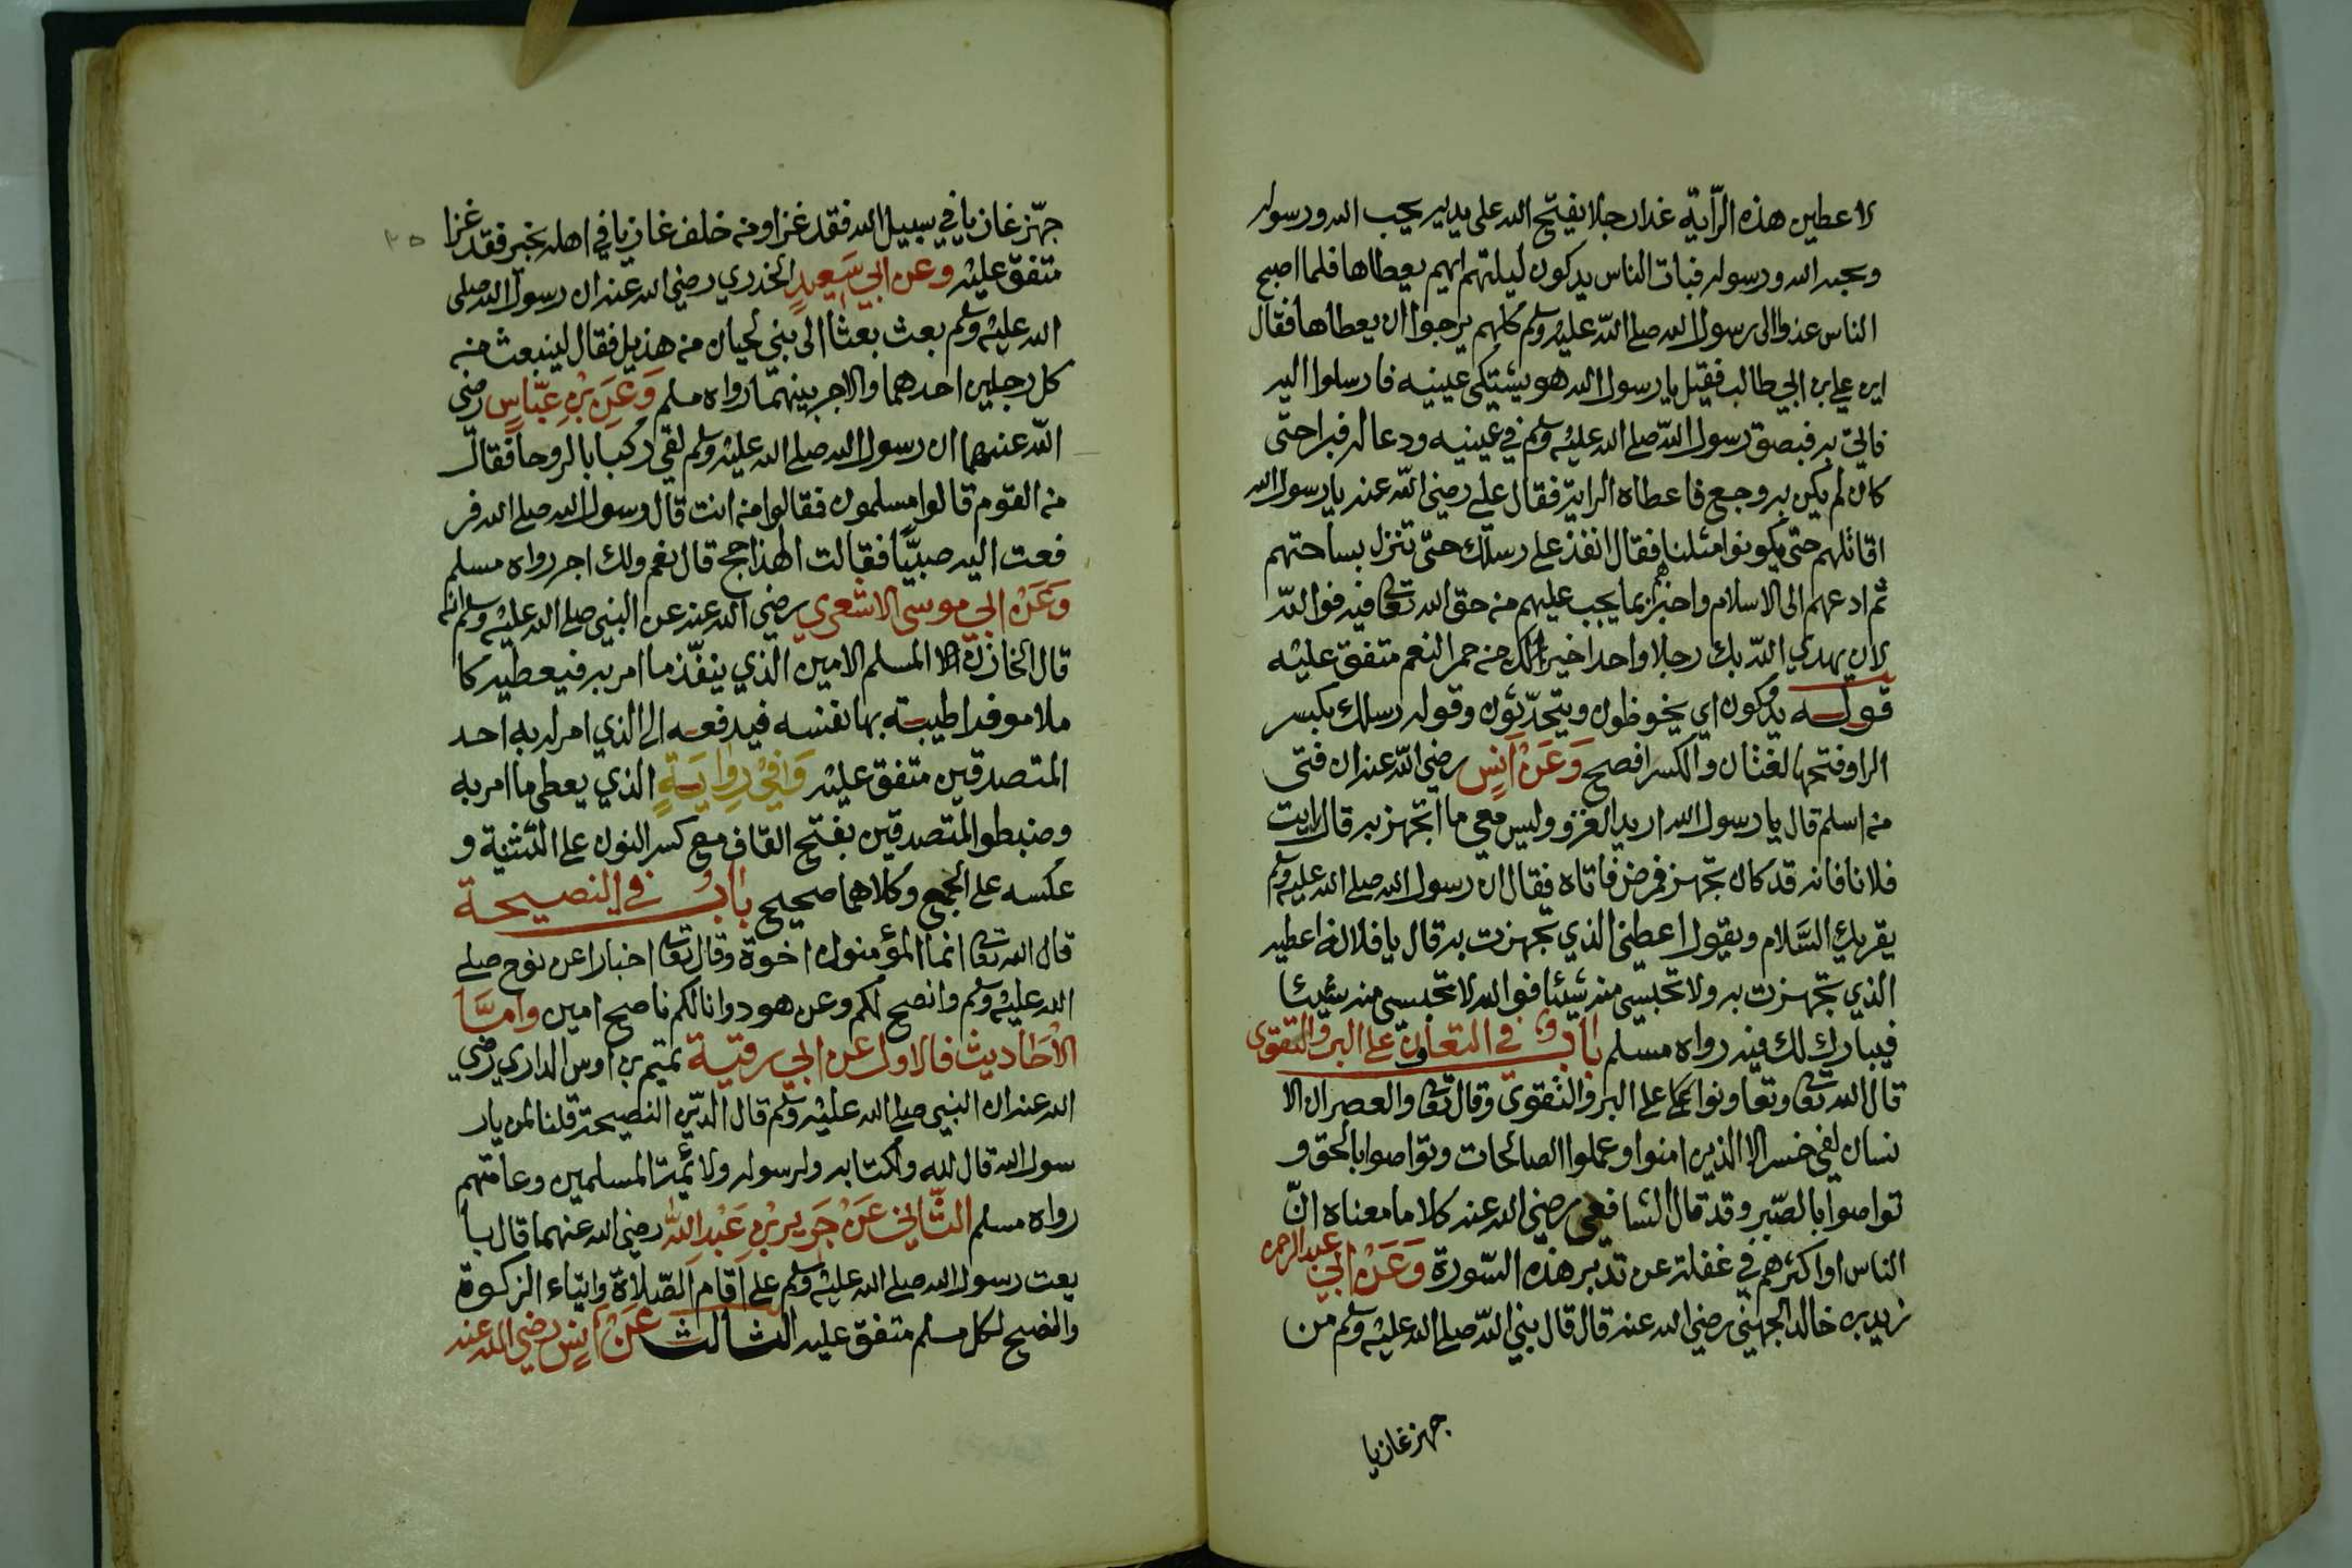 لاعطين هذه الرّاية غدا رجلا يفتح الله على يديه يحب الله ورسوله
ويحبه الله ورسوله فبات الناس يدكون ليلتهم ايهم يعطاها فلما اصبح
الناس غدوا الى رسول الله صلى الله عليه وسلم كلهم يرجوا ان يعطاها فقال
اين علي بن ابي طالب فقيل يا رسول الله هو يشتكي عينيه فارسلوا اليه
فاتي به فبصق رسول الله صلى الله عليه وسلم في عينيه ودعا له فبرا حتى
كان لم يكن به وجع فاعطاه الراية فقال علي رضي الله عنه يا رسول الله
اقاتلهم حتى يكونوا مثلنا فقال انفذ على رسلك حتى تنزل بساحتهم
ثم ادعهم الى الاسلام واخبرهم بما يجب عليهم من حق الله تعالى فيه فوالله
لان يهدي الله بك رجلا واحدا خير لك من حمر النعم متفق عليه
قوله يدكون اي يخوظون ويتحدّثون وقوله رسلك بكسر
الرا وفتحها لغتان والكسر افصح وَعَنْ اَنَسٍ رضي الله عنه ان فتى
من اسلم قال يا رسول الله اريد الغزو وليس معي ما اتجهز به قال ائت
فلانا فانه قد كان تجهز فمرض فاتاه فقال ان رسول الله صلى الله عليه وسلم
يقريك السّلام ويقول اعطني الذي تجهزت به قال يا فلانة اعطيه
الذي تجهزت به ولا تحبسي منه شيئا فوالله لا تحبسي منه شيئا
فيبارك لك فيه رواه مسلم باب في التعاون على البر والتقوى
قال الله تعالى وتعاونوا على البر والتقوى وقال تعالى والعصر ان الا
نسان لفي خسر الا الذين امنوا وعملوا الصالحات وتواصوا بالحق و
تواصوا بالصّبر وقد قال الشافعي رضي الله عنه كلاما معناه انّ
الناس او اكثرهم في غفلة عن تدبر هذه السّورة وَعَنْ ابي عبد الرحمن
زيد بن خالد الجهني رضي الله عنه قال قال نبي الله صلى الله عليه وسلم من
جهز غازيا
جهّز غازيا في سبيل الله فقد غزا ومن خلف غازيا في اهله بخير فقد غزا
٣٥
متفق عليه وعن ابي سَعِيدٍ الخدري رضي الله عنه ان رسول الله صلى
الله عليه وسلم بعث بعثا الى بني لحيان من هذيل فقال لينبعث من
كل رجلين احدهما والاجر بينهما رواه مسلم وَعَنِ بْنِ عَبّاسٍ رضي
الله عنهما ان رسول الله صلى الله عليه وسلم لقي ركبا بالروحا فقال
من القوم قالوا مسلمون فقالوا من انت قال رسول الله صلى الله فر
فعت اليه صبيّا فقالت الهذا حج قال نعم ولك اجر رواه مسلم
وَعَنْ ابي موسى الاشعري رضي الله عنه عن النبي صلى الله عليه وسلم انه
قال الخازن المسلم الامين الذي ينفّذ ما امر به فيعطيه كا
ملا موفرا طيبة بها نفسه فيدفعه الى الذي امر له به احد
المتصدقين متفق عليه وَفِيْ رِوايَةٍ الذي يعطي ما امر به
وضبطوا المتصدقين بفتح القاف مع كسر النون على التثنية و
عكسه على الجمع وكلاهما صحيح بابُ في النصيحة
قال الله تعالى انما المؤمنون اخوة وقال تعالى اخبارا عن نوح صلى
الله عليه وسلم وانصح لكم وعن هود وانا لكم ناصح امين وامَّا
الأحَاديث فالاول عن ابي رقية تميم بن اوس الداري رضي
الله عنه ان النبي صلى الله عليه وسلم قال الدّين النصيحة قلنا لمن يار
سول الله قال لله ولكتابه ولرسوله ولائمة المسلمين وعامتهم
رواه مسلم الثّاني عَنْ جَرير بْنِ عَبْدِ اللّٰه رضي الله عنهما قال با
يعت رسول الله صلى الله عليه وسلم على اقام الصّلاة وايتاء الزكوة
والنصح لكل مسلم متفق عليه الثالث عَنْ اَنَسٍ رضي الله عنه